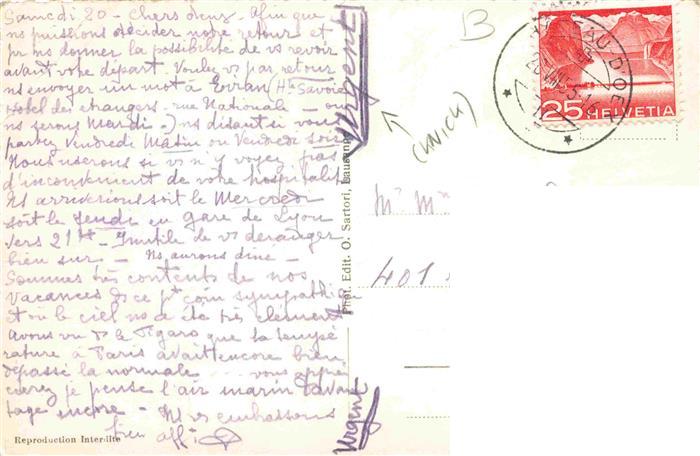 Samedi 20 - Chers deux - Afin que
ns puissions décider notre retour et
pr ns donner la possibilité de vs revoir
avant votre départ. Voulez vs par retour
ns envoyer un mot à Evian (Hte Savoie
Hotel des étrangers. rue Nationale - où
ns serons Mardi -) ns disant si vous
partez Vendredi Matin ou Vendredi soir
Nous userons si vs n'y voyez pas
d'inconvénient de votre hospitalité
Ns arriverions soit le Mercredi
soit le Jeudi en gare de Lyon
vers 21h - Inutile de vs déranger
bien sur - Ns aurons diné -
Sommes très contents de nos
vacances ds ce pt coin sympathique
et où le ciel ns a été très clément
Avons vu ds le Figaro que la tempé
rature à Paris avait encore bien
dépassé la normale - vous appré
cierez je pense l'air marin davan
tage encore - Ns vs embrassons
bien aff
Reproduction Interdite
Urgent
Urgent
Phot. Edit. O. Sartori, Lausanne
B
25 HELVETIA
Mr Mme
401